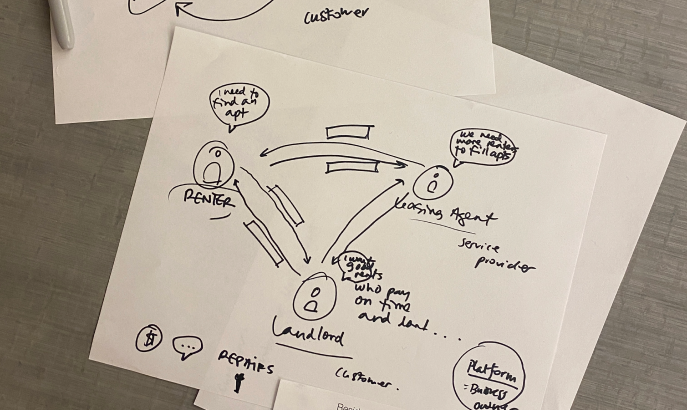 customer
I need to
find an
apt
we need
more renters
to fill apts
RENTER
Leasing Agent
service
provider
I want
good
who pay
on time
and dont...
Landlord
REPAIRS
customer.
Platform
= Business